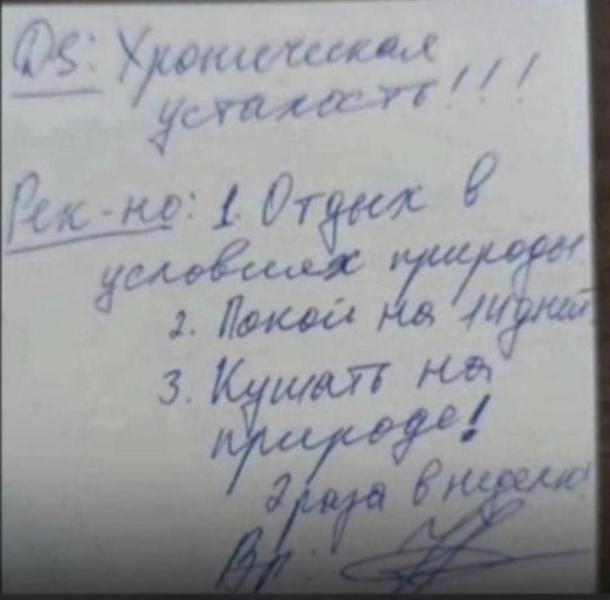 DS: Хроническая
усталость!!!
Рек-но: 1. Отдых в
условиях природы
2. Покой на 14 дней
3. Кушать на
природе!
2 раза в неделю
Вр: